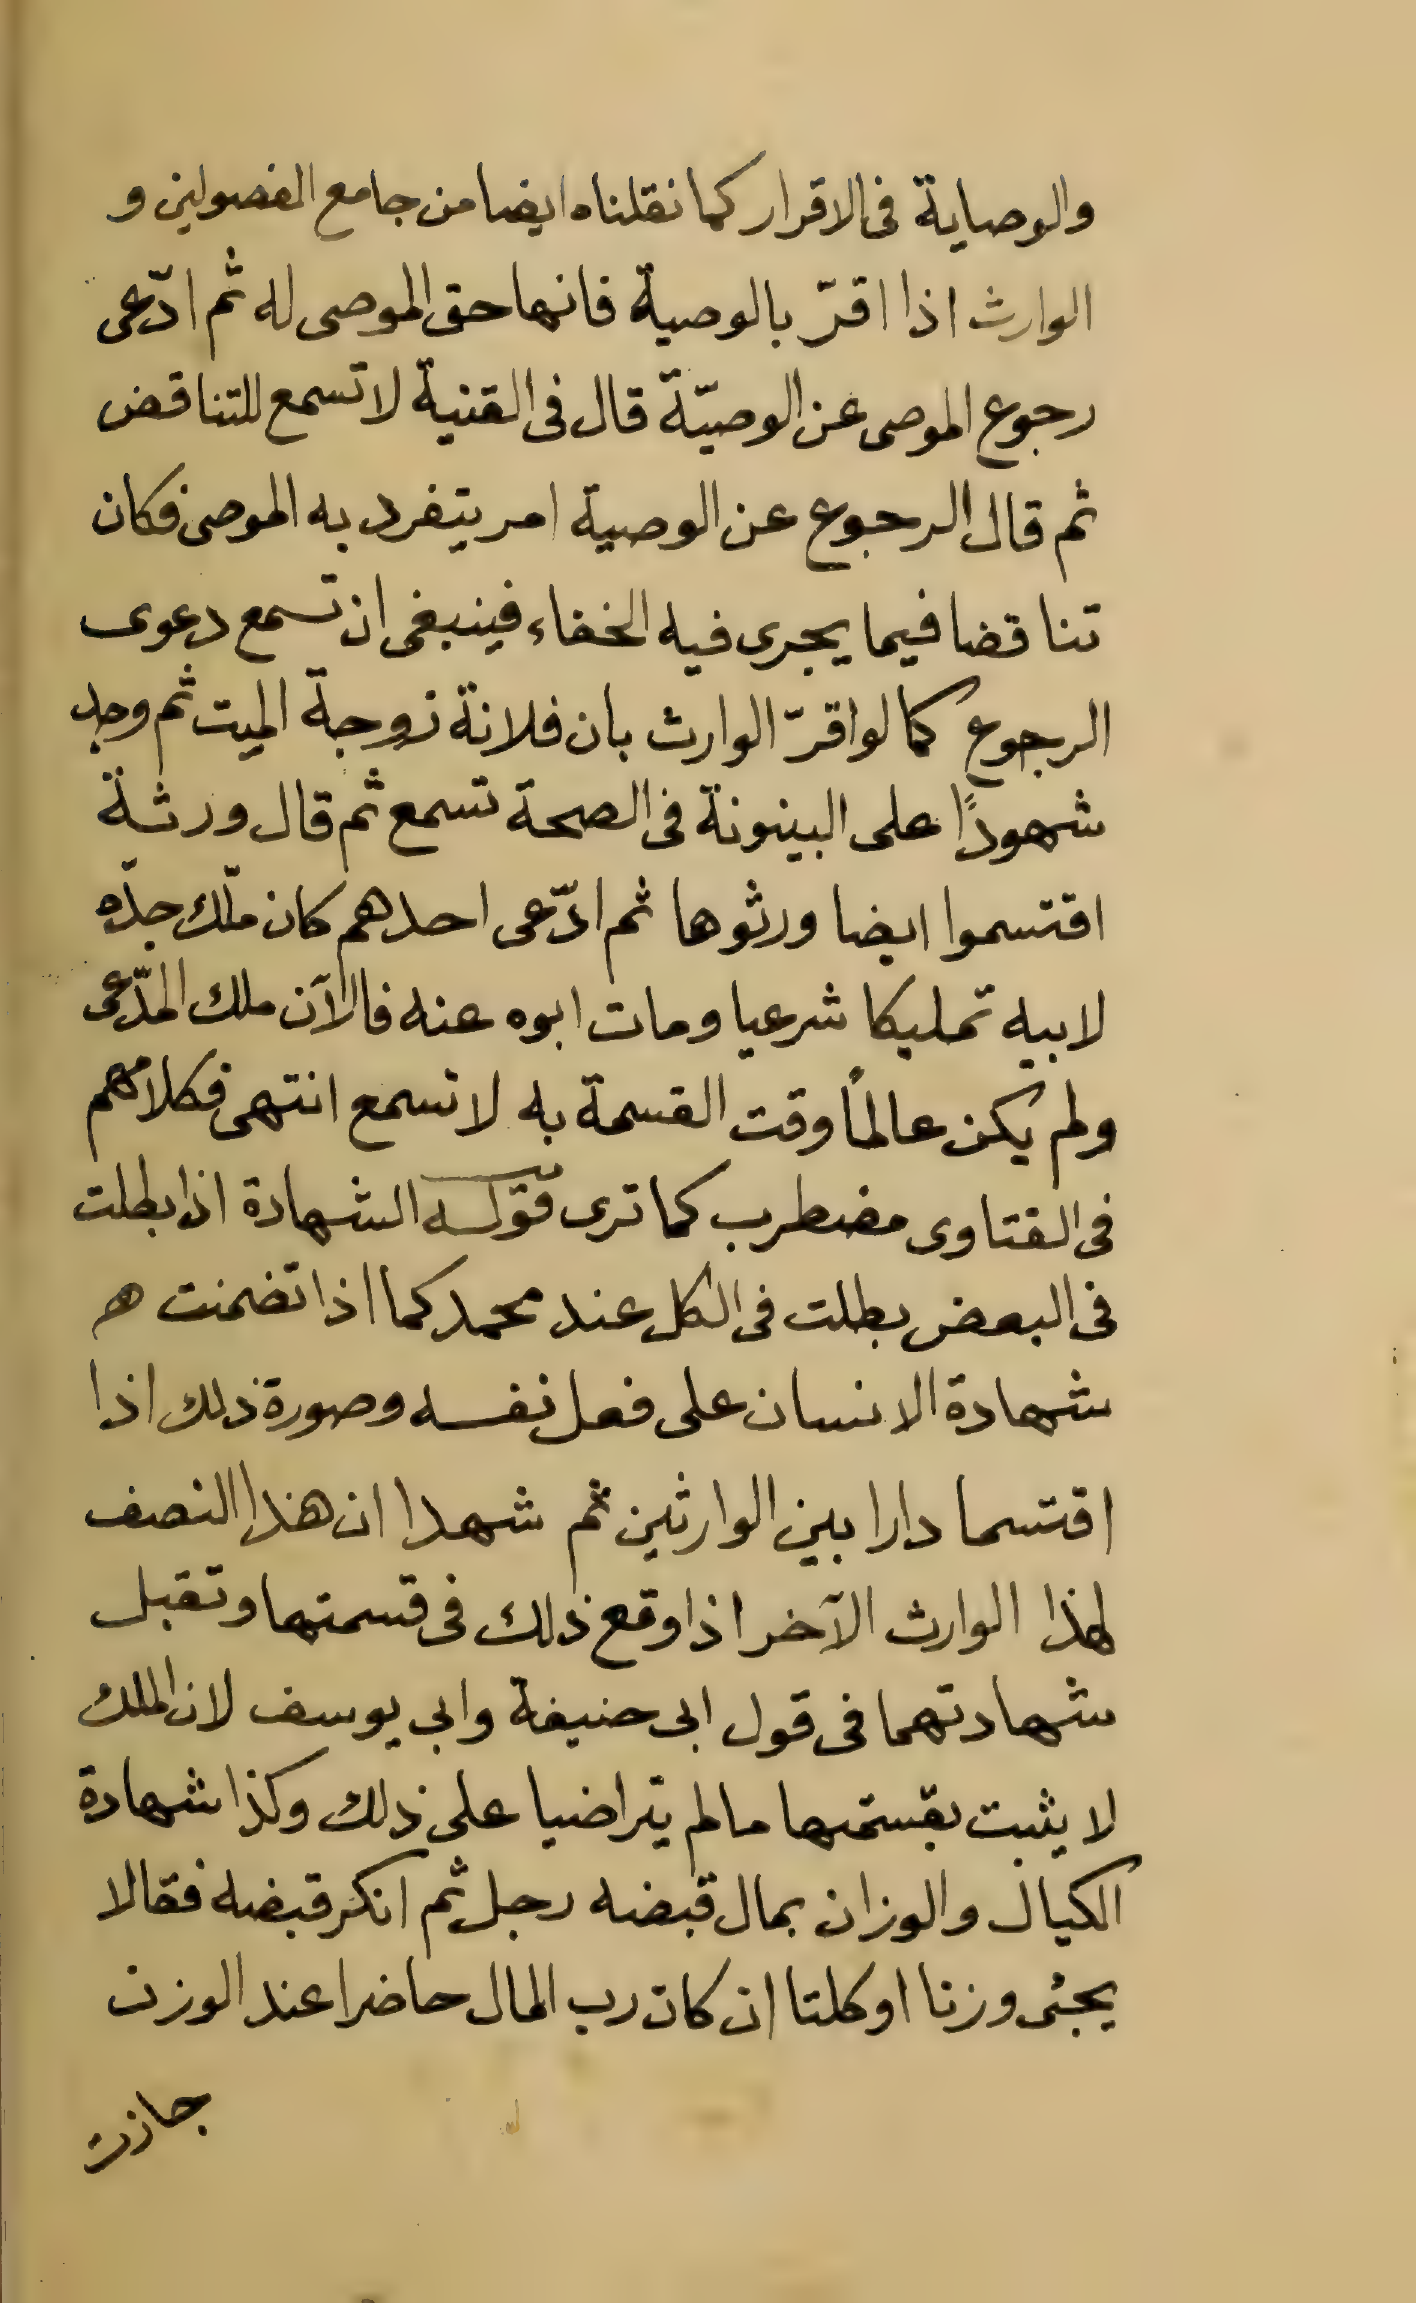 والوصاية فى الاقرار كما نقلناه ايضا من جامع الفصولين و
الوارث اذا اقرّ بالوصية فانها حق الموصى له ثم ادّعى
رجوع الموصى عن الوصيّة قال فى القنية لا تسمع للتناقض
ثم قال الرجوع عن الوصية امر يتفرد به الموصى فكان
تناقضا فيما يجرى فيه الخفاء فينبغى ان تسمع دعوى
الرجوع كما لو اقرّ الوارث بان فلانة زوجة الميت ثم وجد
شهودًا على البينونة فى الصحة تسمع ثم قال ورثة
اقتسموا ايضا ورثوها ثم ادّعى احدهم كان ملّك جدّه
لابيه تمليكا شرعيا ومات ابوه عنه فالآن ملك المدّعى
ولم يكن عالمًا وقت القسمة به لا تسمع انتهى فكلامهم
فى الفتاوى مضطرب كما ترى قوله الشهادة اذا بطلت
فى البعض بطلت فى الكل عند محمد كما اذا تضمنت هـ
شهادة الانسان على فعل نفسه وصورة ذلك اذا
اقتسما دارا بين الوارثين ثم شهدا ان هذا النصف
لهذا الوارث الآخر اذا وقع ذلك فى قسمتهما وتقبل
شهادتهما فى قول ابى حنيفة وابى يوسف لان الملك
لا يثبت بقسمتهما مالم يتراضيا على ذلك وكذا شهادة
الكيال والوزان بمال قبضه رجل ثم انكر قبضه فقالا
يجئى وزنا او كلتا ان كان رب المال حاضرا عند الوزن
جازت